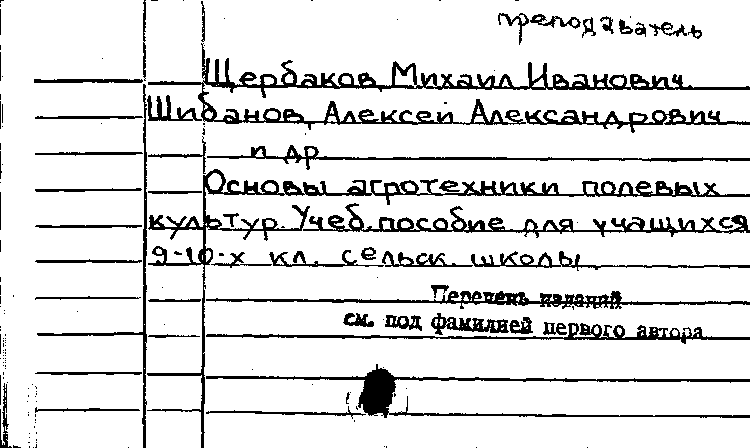 преподаватель
Щербаков, Михаил Иванович.
Шибанов, Алексей Александрович
и др.
Основы агротехники полевых
культур. Учеб. пособие для учащихся
9-10-х кл. сельск. школы.
Перечень изданий
см. под фамилией первого автора